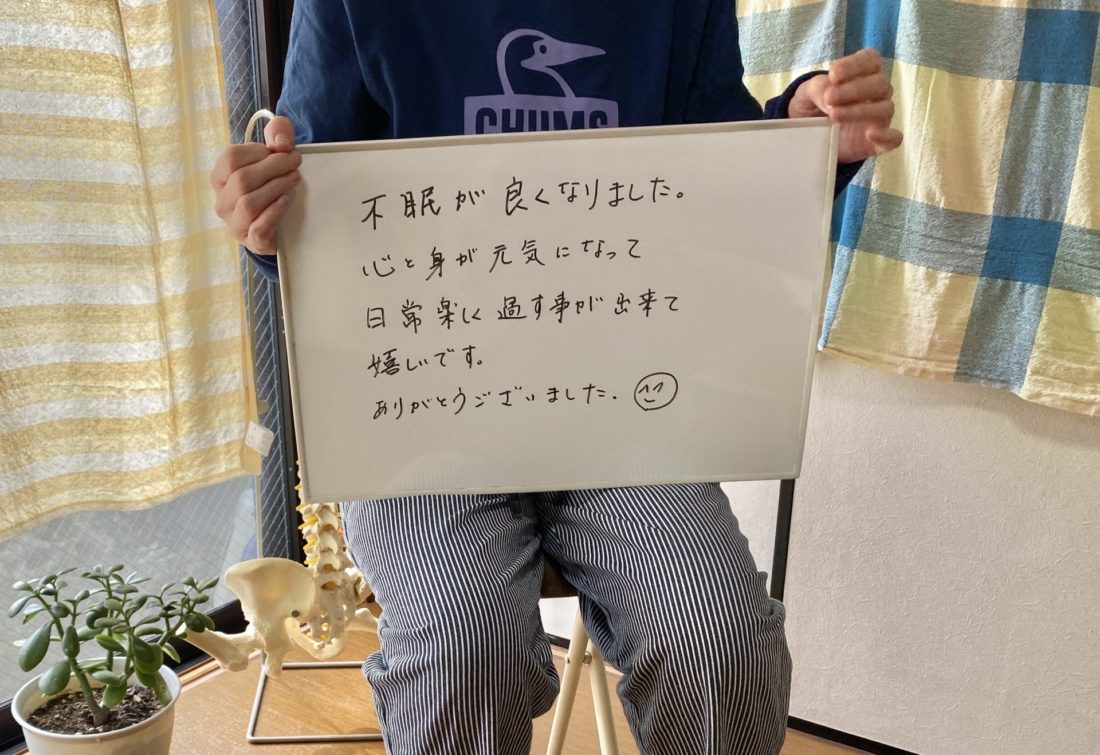 CHUMS
不眠が良くなりました。
心と身が元気になって
日常楽しく過す事が出来て
嬉しいです。
ありがとうございました.